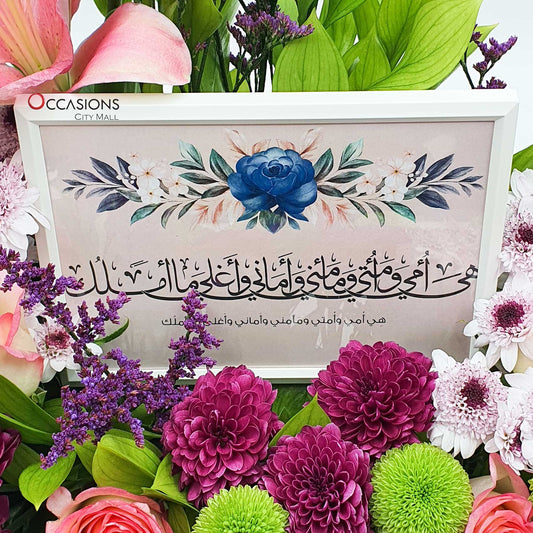 OCCASIONS
CITY MALL
هي أمي وأمتي ومأمني وأماني وأغلى ما أملك
هي أمي وأمتي ومأمني وأماني وأغلى